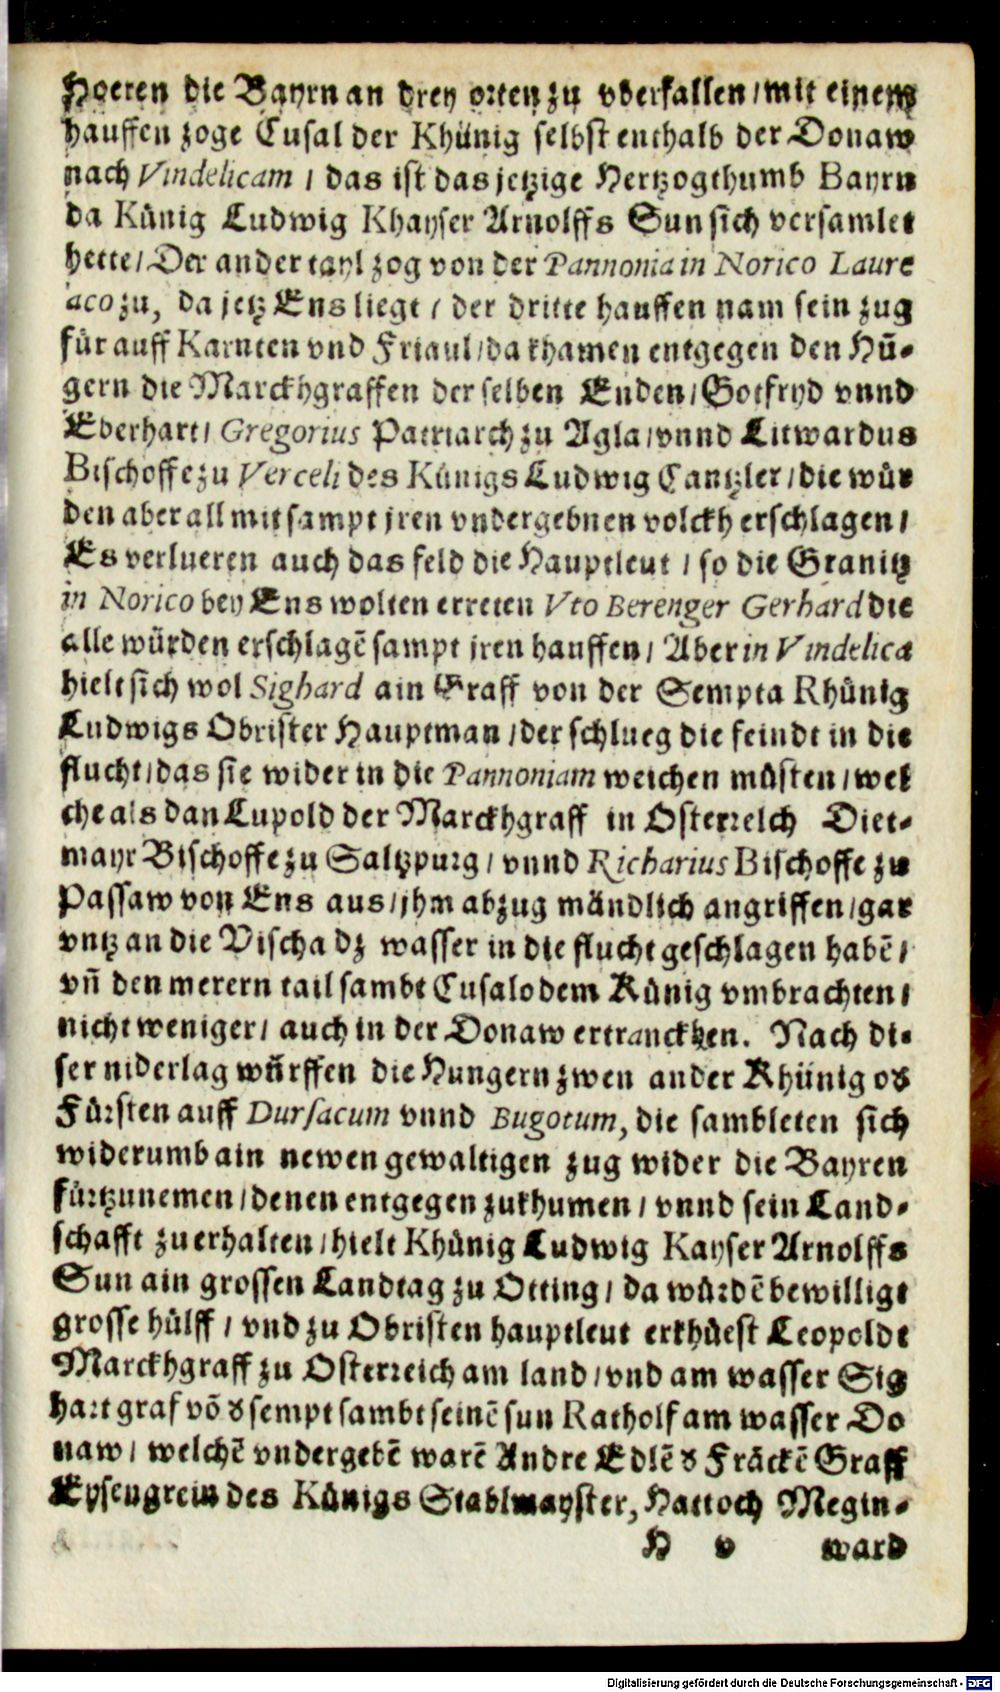 Hoeren die Bayrn an drey orten zu vberfallen / mit einem
hauffen zoge Cusal der Khünig selbst enthalb der Donaw
nach Vindelicam / das ist das jetzige Hertzogthumb Bayrn
da Künig Ludwig Khayser Arnolffs Sun sich versamlet
hette / Der ander tayl zog von der Pannonia in Norico Laure
aco zu, da jetz Ens liegt / der dritte hauffen nam sein zug
für auff Karnten vnd Friaul / da khamen entgegen den Hũ-
gern die Marckhgraffen der selben Enden / Gotfryd vnnd
Eberhart / Gregorius Patriarch zu Agla / vnnd Litwardus
Bischoffe zu Verceli des Künigs Ludwig Cantzler / die wür
den aber all mit sampt jren vndergebnen volckh erschlagen /
Es verlueren auch das feld die Hauptleut / so die Granitz
in Norico bey Ens wolten erreten Vto Berenger Gerhard die
alle würden erschlagẽ sampt jren hauffen / Aber in Vindelica
hielt sich wol Sighard ain Graff von der Sempta Khünig
Ludwigs Obrister Hauptman / der schlueg die feindt in die
flucht / das sie wider in die Pannoniam weichen müsten / wel
che als dan Lupold der Marckhgraff in Osterreich Diet-
mayr Bischoffe zu Saltzpurg / vnnd Richarius Bischoffe zu
Passaw von Ens aus / jhm abzug mändlich angriffen / gar
vntz an die Vischa dz wasser in die flucht geschlagen habẽ /
vñ den merern tail sambt Cusalo dem Künig vmbrachten /
nicht weniger / auch in der Donaw ertranckhen. Nach di-
ser niderlag würffen die Hungern zwen ander Khünig oδ
Fürsten auff Dursacum vnnd Bugotum, die sambleten sich
widerumb ain newen gewaltigen zug wider die Bayren
fürtzunemen / denen entgegen zukhumen / vnnd sein Land-
schafft zu erhalten / hielt Khünig Ludwig Kayser Arnolffs
Sun ain grossen Landtag zu Otting / da würdẽ bewilligt
grosse hülff / vnd zu Obristen hauptleut erkhüest Leopoldt
Marckhgraff zu Osterreich am land / vnd am wasser Sig
hart graf võ δ sempt sambt seinẽ sun Ratholf am wasser Do
naw / welchẽ vndergebẽ warẽ Andre Edlẽ δ Fräckẽ Graff
Eysengrein des Künigs Stablmayster, Hattoch Megin-
H v ward
Digitalisierung gefördert durch die Deutsche Forschungsgemeinschaft - DFG